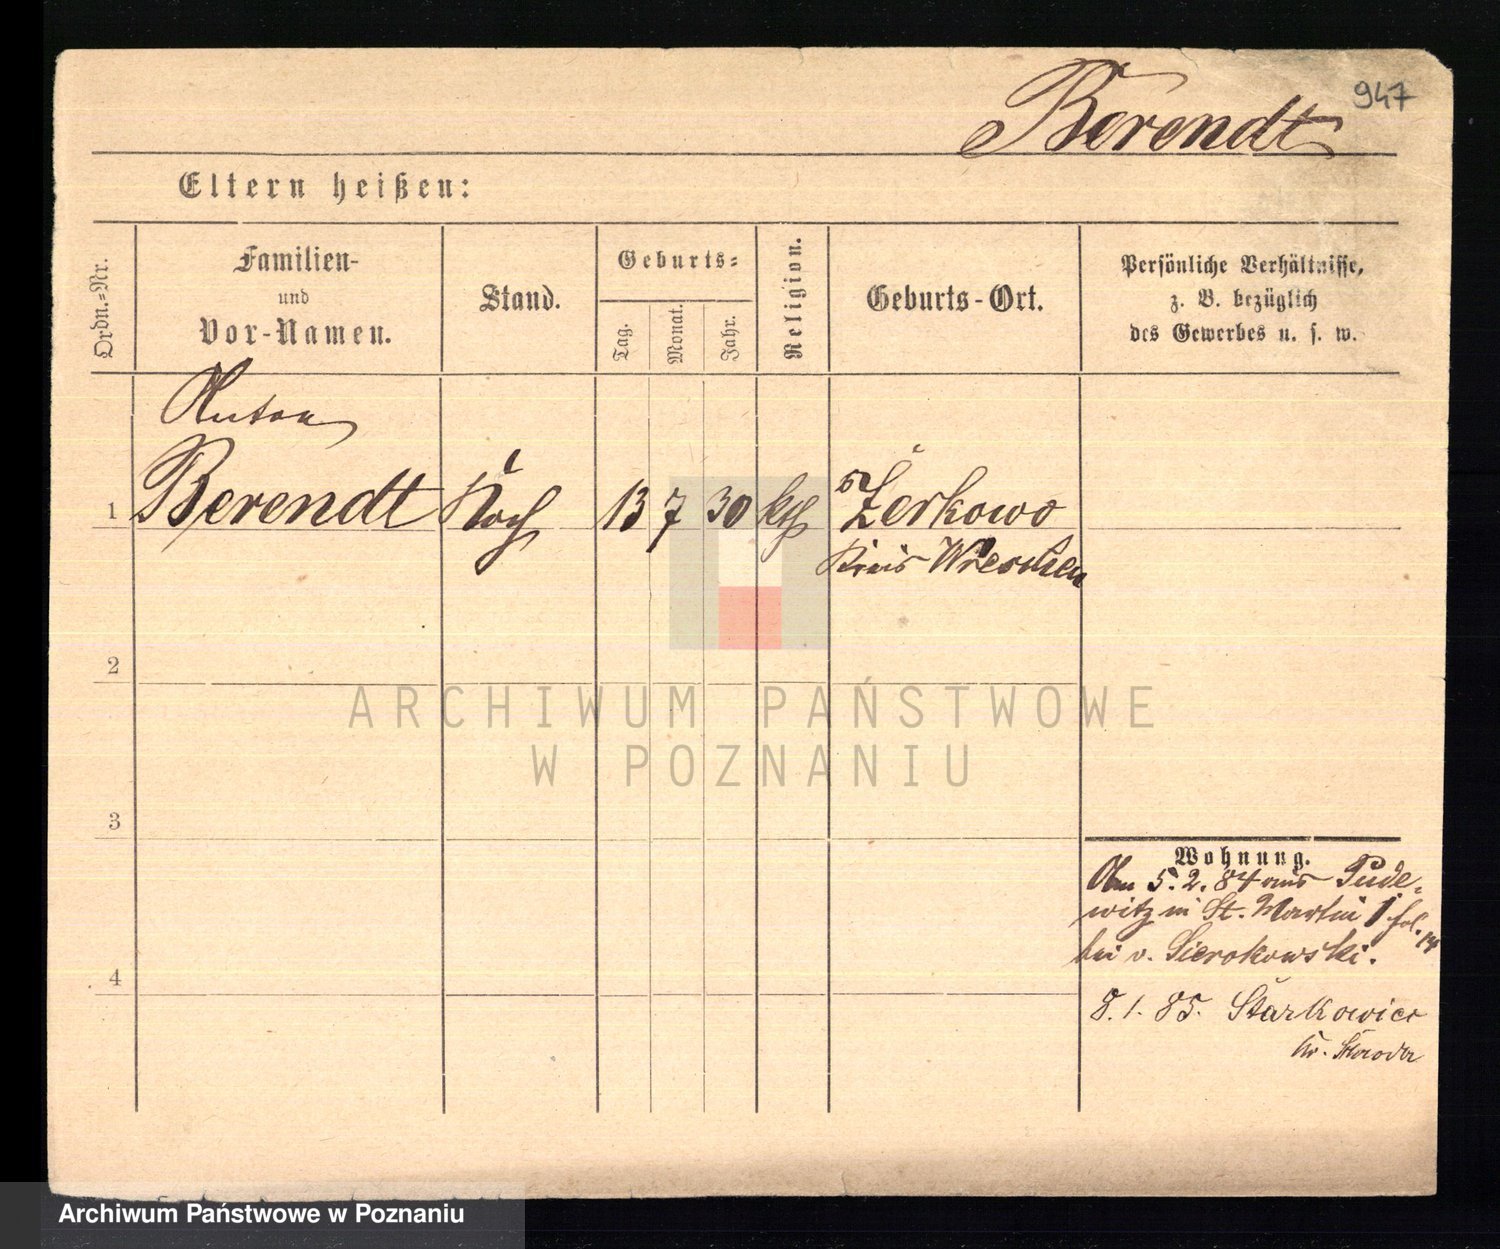 947
Berendt
Eltern heißen:
Ordn.-Nr.
Familien-
und
Vor-Namen.
Stand.
Geburts-
Tag.
Monat.
Jahr.
Religion.
Geburts-Ort.
Persönliche Verhältnisse,
z. B. bezüglich
des Gewerbes u. s. w.
Anton
1 Berendt Koch 13 7 30 kth Zerkowo
Kreis Wreschen
2
ARCHIWUM PAŃSTWOWE
W POZNANIU
3
Wohnung.
Am 5.2.84 aus Pude-
witz in St. Martin 1 fol.
14
bei v. Sierokowski.
4
8.1.85. Starkowiec
Kr. Schroda
Archiwum Państwowe w Poznaniu